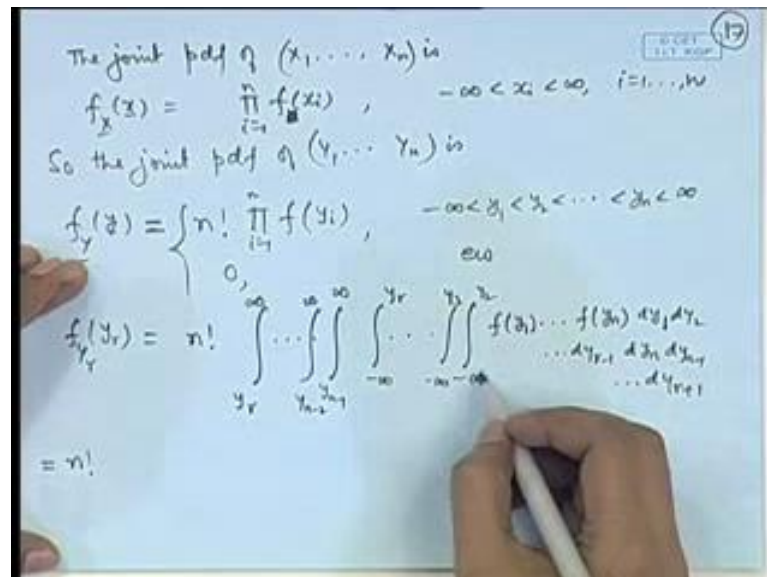 17
The joint pdf of (X₁, ..., Xₙ) is
f_X(x) = ∏_{i=1}^{n} f(xᵢ), -∞ < xᵢ < ∞, i=1...,n
So the joint pdf of (Y₁ ... Yₙ) is
f_Y(y) = { n! ∏_{i=1}^{n} f(yᵢ), -∞ < y₁ < y₂ < ... < yₙ < ∞
0, ew
f_{Y_r}(y_r) = n! ∫_{y_r}^{∞} ... ∫_{y_{n-2}}^{∞} ∫_{y_{n-1}}^{∞} ∫_{-∞}^{y_r} ... ∫_{-∞}^{y_3} ∫_{-∞}^{y_2} f(y₁) ... f(yₙ) dy₁ dy₂
... dy_{r-1} dyₙ dy_{n-1}
... dy_{r+1}
= n!